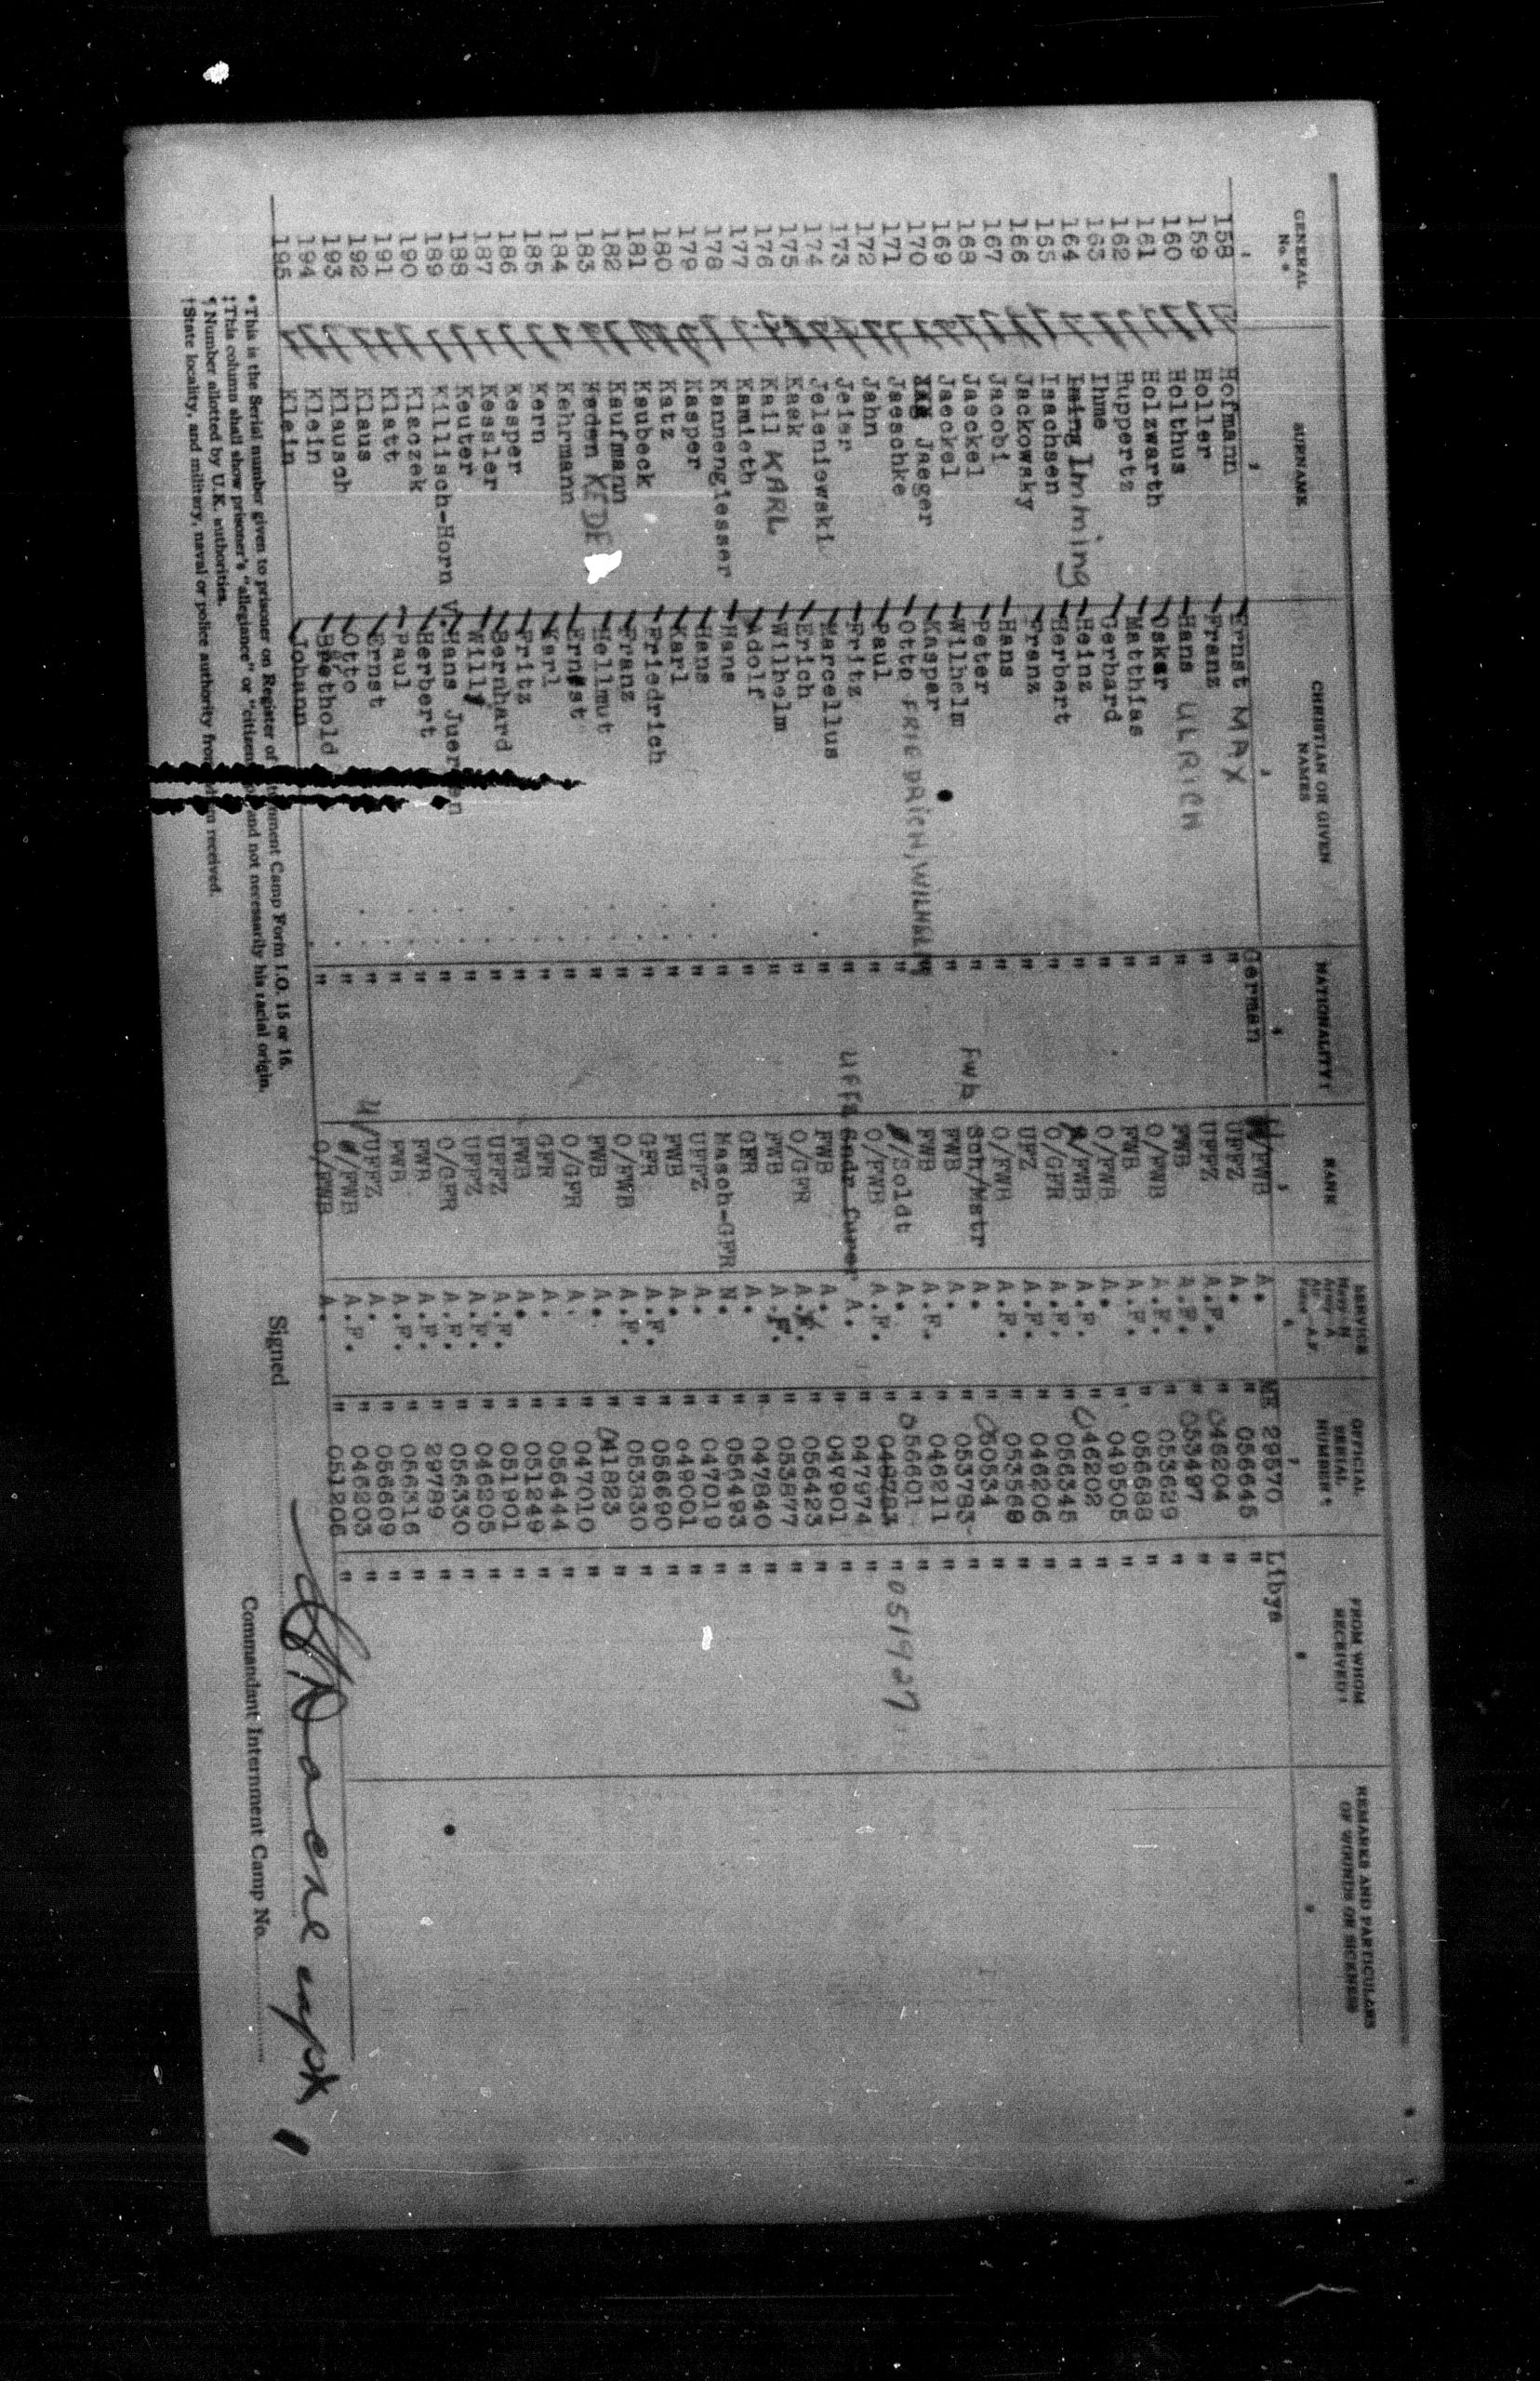 GENERAL No. * SURNAME CHRISTIAN OR GIVEN NAMES NATIONALITY‡ RANK SERVICE Navy N Army A Air Force A.F. OFFICIAL SERIAL NUMBER¶ FROM WHOM RECEIVED† REMARKS AND PARTICULARS OF WOUNDS OR SICKNESS
1 2 3 4 5 6 7 8 9
158 Hofmann Ernst MAX German H/FWB A. ME 29570 Libya
159 Holler Franz " UFFZ A. " 056645 "
160 Holthus Hans ULRICH " UFFZ A.F. " 046204 "
161 Holzwarth Oskar " FWB A.F. " 053497 "
162 Huppertz Matthias " O/FWB A.F. " 053629 "
163 Ihme Gerhard " FWB A.F. " 056688 "
164 Iming Imming Heinz " O/FWB A. " 049505 "
165 Isachsen Herbert " /FWB A.F. " 046202 "
166 Jackowsky Franz " O/GFR A.F. " 056345 "
167 Jacobi Hans " UFZ A.F. " 046206 "
168 Jaeckel Peter " O/FWB A.F. " 053569 "
169 Jaeckel Wilhelm " Fwb Sch/Mstr A. " 050534 "
170 Jaeger Kaspar " FWB A. " 053783 "
171 Jaeschke Otto FRIEDRICH, WILHELM " FWB A.F. " 046211 "
172 Jahn Paul " /Soldt A. " 056601 "
173 Jeier Fritz " O/FWB A.F. " 048783 " 051927
174 Jeleniowski Marcellus " Uffz Sndr furer A. " 047974 "
175 Kaek Erich " FWB A. " 047901 "
176 Kail KARL Wilhelm " O/GFR A.F. " 056423 "
177 Kamieth Adolf " FWB A.F. " 053877 "
178 Kannengiesser Hans " GFR A. " 047840 "
179 Kasper Hans " Masch-GFR N. " 056493 "
180 Katz Karl " UFFZ A. " 047019 "
181 Kaubeck Friedrich " FWB A. " 049001 "
182 Kaufmann Franz " GFR A.F. " 056690 "
183 Keden KEDE Hellmut " O/FWB A.F. " 053830 "
184 Kehrmann Ernst " FWB A. " 041823 "
185 Kern Karl " O/GFR A. " 047010 "
186 Kesper Fritz " GFR A. " 056444 "
187 Kessler Bernhard " FWB A. " 051249 "
188 Keuter Willy " UFFZ A.F. " 051901 "
189 Killisch-Horn V. Hans Juergen " UFFZ A.F. " 046205 "
190 Klaczek Herbert " O/GFR A.F. " 056330 "
191 Klatt Paul " FWB A.F. " 29789 "
192 Klaus Ernst " FWB A.F. " 056316 "
193 Klausch Otto " U/UFFZ A. " 056609 "
194 Klein Berthold " /FWB A.F. " 046203 "
195 Klein Johann " O/FWB A. " 051206 "
*This is the Serial number given to prisoner on Register of Internment Camp Form I.O. 15 or 16.
‡This column shall show prisoner's "allegiance" or "citizenship" and not necessarily his racial origin.
¶Number allotted by U.K. authorities.
†State locality, and military, naval or police authority from whom received.
Signed
Commandant Internment Camp No.